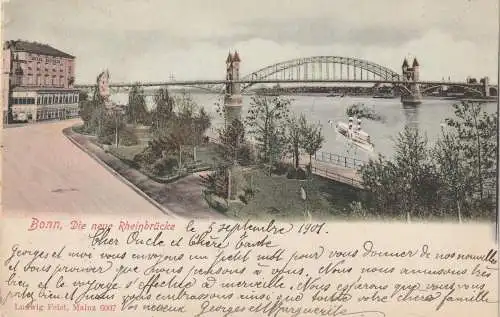 Bonn, Die neue Rheinbrücke
le 5 septembre 1901.
Cher Oncle et Chère Tante
Georges et moi vous envoyons un petit mot pour vous donner de nos nouvelles
et vous prouver que nous pensons à vous. Nous nous amusons très
bien et le voyage s'effectue à merveille. Nous espérons que vous
et nous vous embrassons ainsi que toute votre chère famille
Vos neveux Georges et Marguerite
Ludwig Feist, Mainz 6007